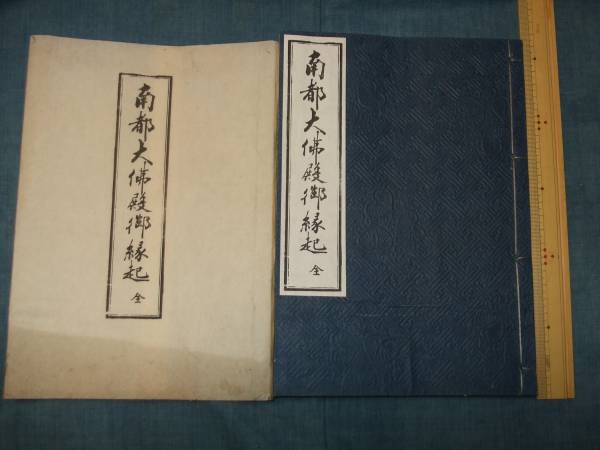 南都大佛殿御縁起 全
南都大佛殿御縁起 全